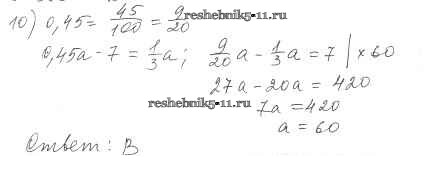 10) 0,45 = 45/100 = 9/20
reshebnik5-11.ru
0,45a - 7 = 1/3 a; 9/20 a - 1/3 a = 7 | × 60
27a - 20a = 420
reshebnik5-11.ru
7a = 420
a = 60
Ответ: В